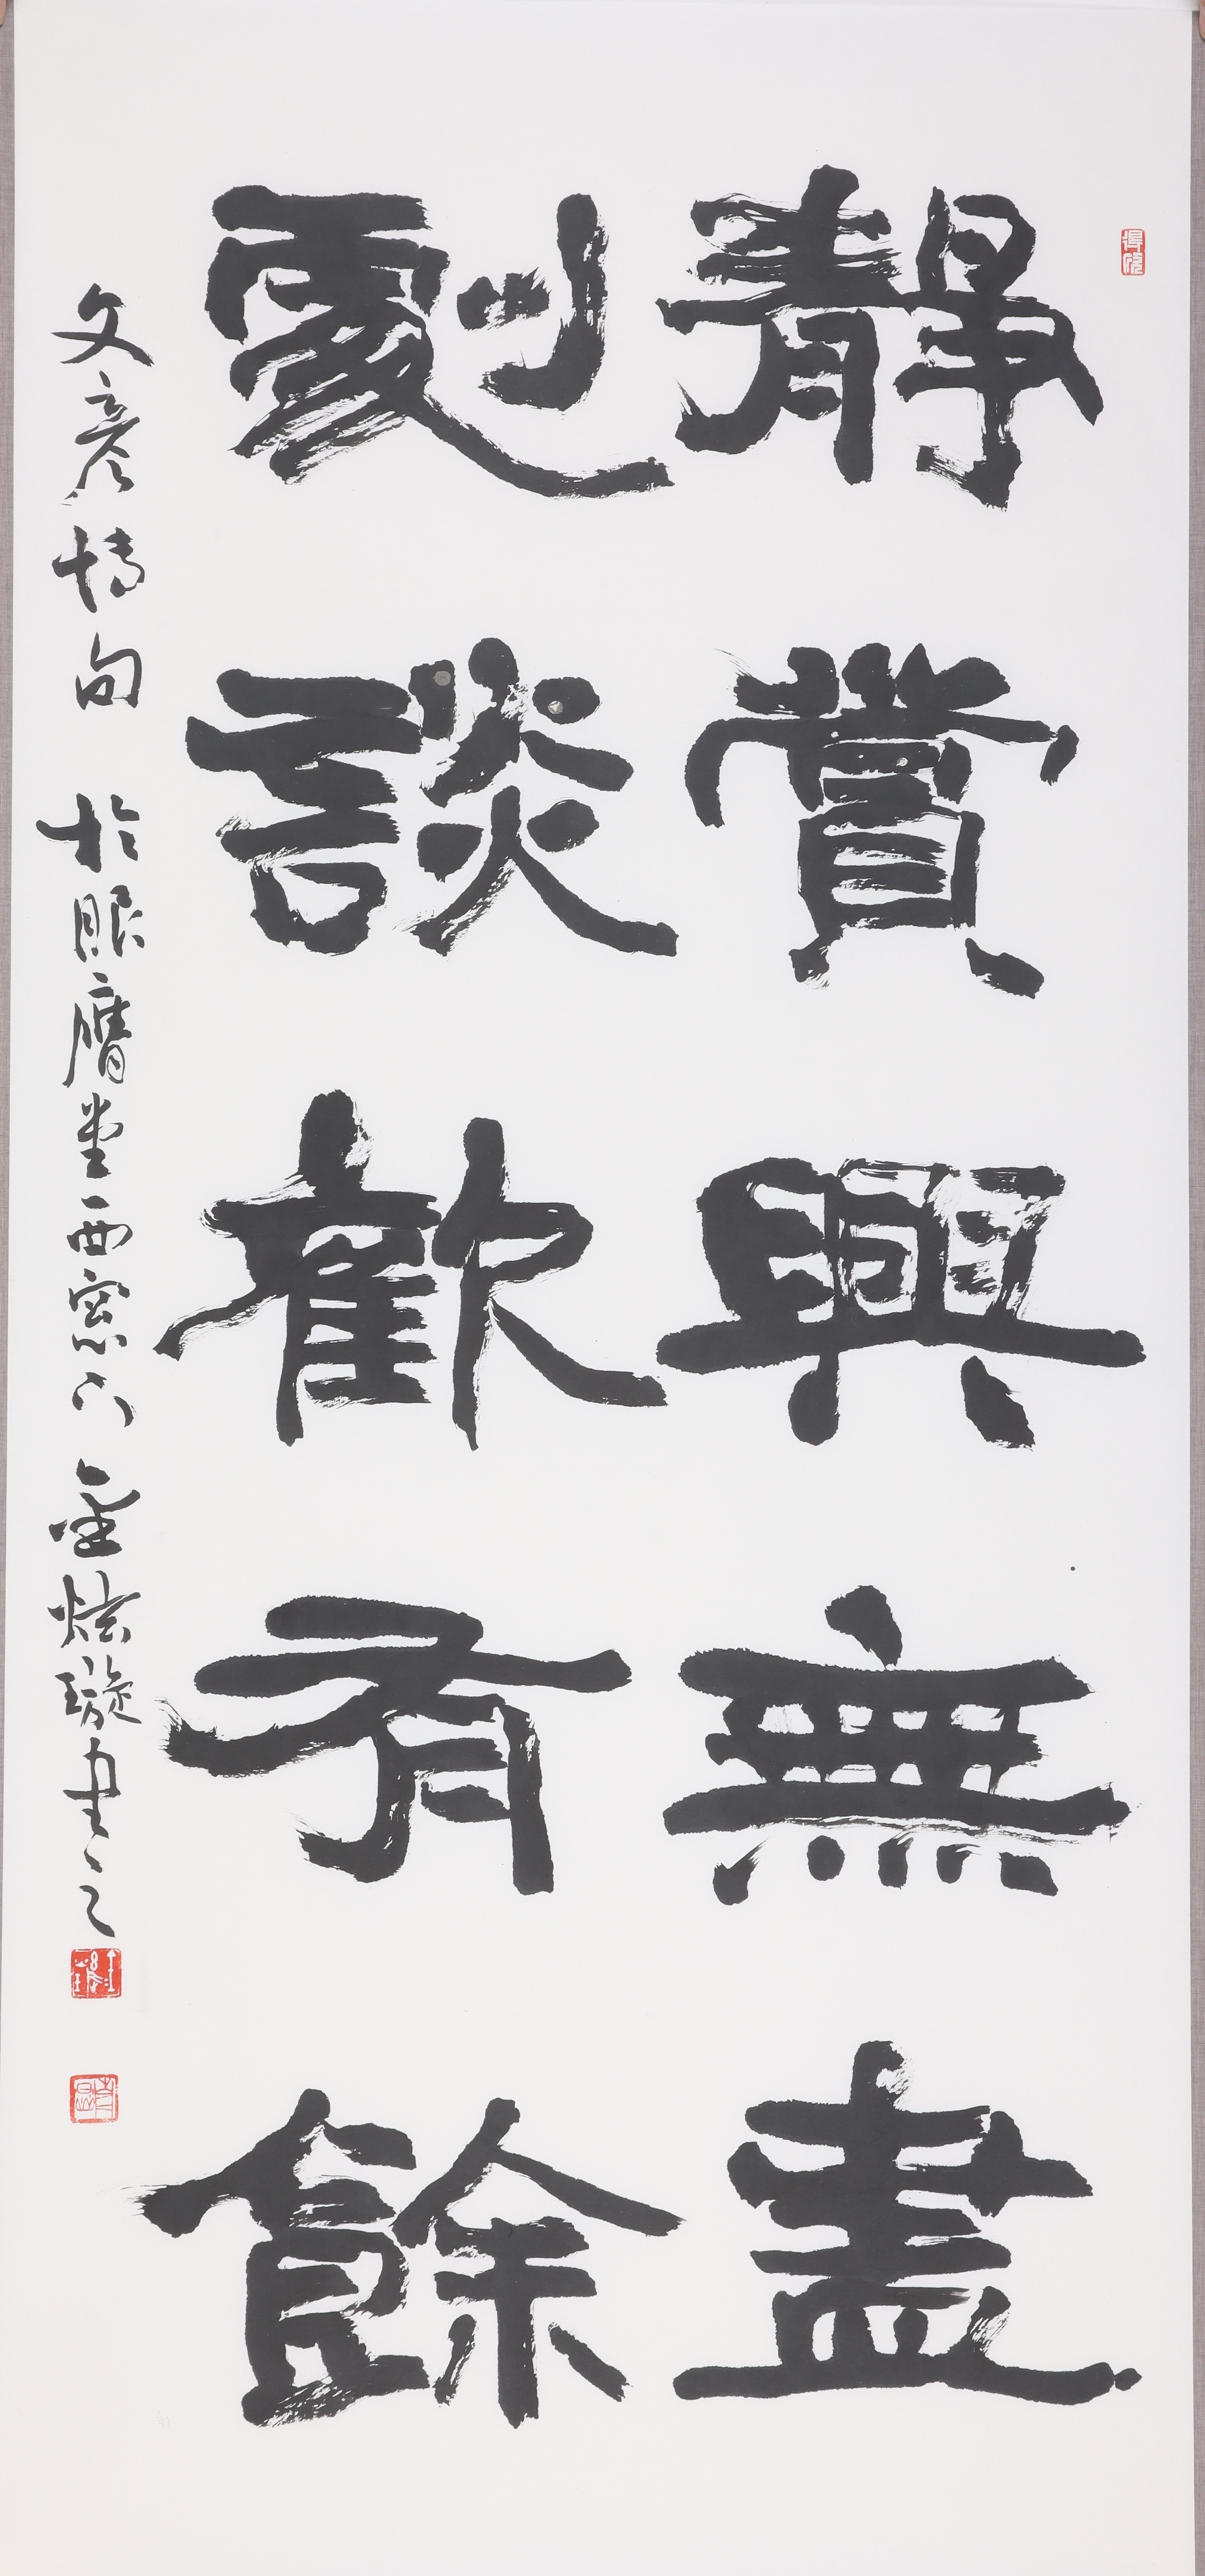 靜賞興無盡
劇談歡有餘
文彥博句 於眼膺堂西窓下 金炫璇書之